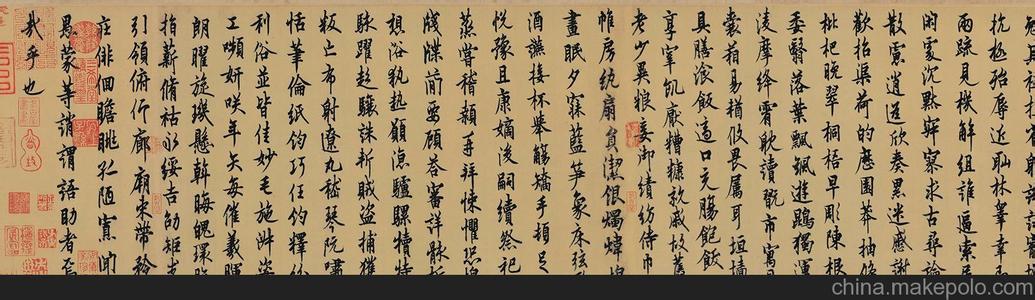 抗極殆辱近恥林皋幸
兩疏見機解組誰逼索居
閑處沉默寂寥求古尋論
散慮逍遙欣奏累遣慼謝
歡招渠荷的歷園莽抽條
枇杷晚翠桐梧早彫陳根
委翳落葉飄颻遊鵾獨運
凌摩絳霄耽讀翫市寓目
囊箱易輶攸畏屬耳垣牆
具膳飡飯適口充腸飽飫
享宰飢厭糟糠親戚故舊
老少異粮妾御績紡侍巾
帷房紈扇員潔銀燭煒煌
晝眠夕寐藍笋象床弦
酒讌接杯舉觴矯手頓足
悅豫且康嫡後嗣續祭祀
蒸嘗稽顙再拜悚懼恐
牋牒簡要顧答審詳骸垢
想浴執熱願涼驢騾犢特
駭躍超驤誅斬賊盜捕獲
叛亡布射遼丸嵇琴阮嘯
恬筆倫紙鈞巧任釣釋紛
利俗並皆佳妙毛施淑姿
工嚬妍咲年矢每催羲暉
朗曜旋璣懸斡晦魄環
指薪脩祜永綏吉劭矩步
引領俯仰廊廟束帶矜
莊俳佪瞻眺孤陋寡聞
愚蒙等誚謂語助者焉
哉乎也
china.makepolo.com